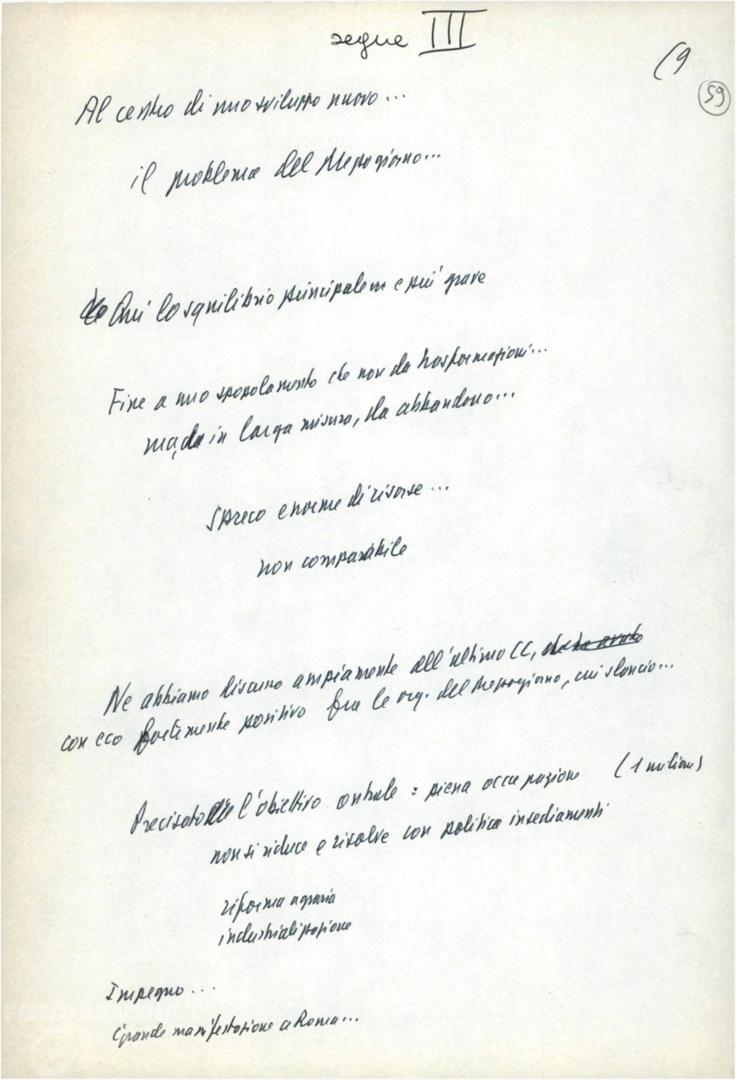 segue III
(9
59
Al centro di uno sviluppo nuovo...
il problema del Mezzogiorno...
Qui lo squilibrio principale e più grave
Fine a uno spopolamento che non da trasformazioni...
ma da in larga misura, da abbandono...
Spreco enorme di risorse...
non comparabile
Ne abbiamo discusso ampiamente all'ultimo CC,
con eco fortemente positivo fra le org. del Mezzogiorno, cui slancio...
Precisato l'obiettivo centrale: piena occupazione (1 milione)
non si riduce e risolve con politica insediamenti
riforma agraria
industrializzazione
Impegno...
Grande manifestazione a Roma...